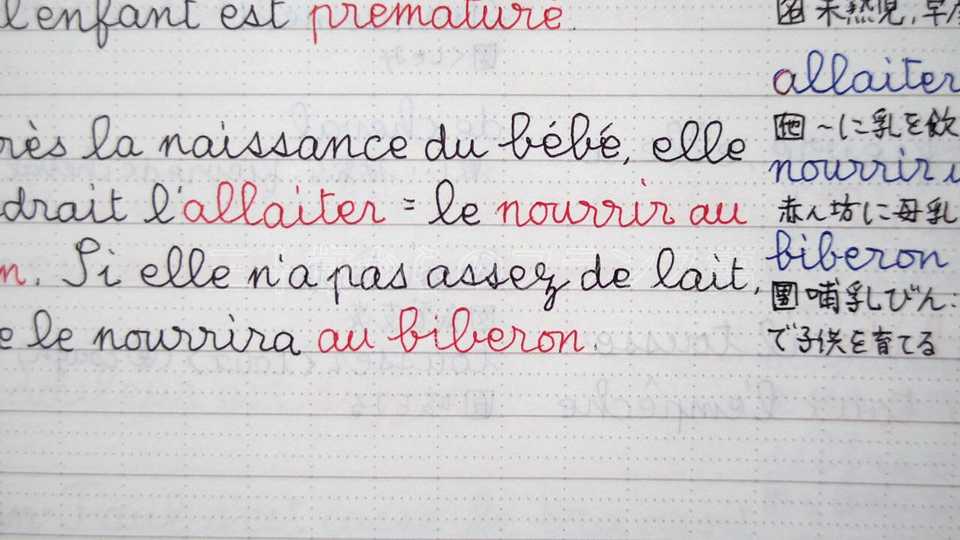 l'enfant est prématuré.
rès la naissance du bébé, elle
drait l'allaiter = le nourrir au
n. Si elle n'a pas assez de lait,
e le nourrira au biberon.
名 未熟児, 早産
allaiter
他 ~に乳を飲
nourrir
赤ん坊に母乳
biberon
男 哺乳びん:
で子供を育てる